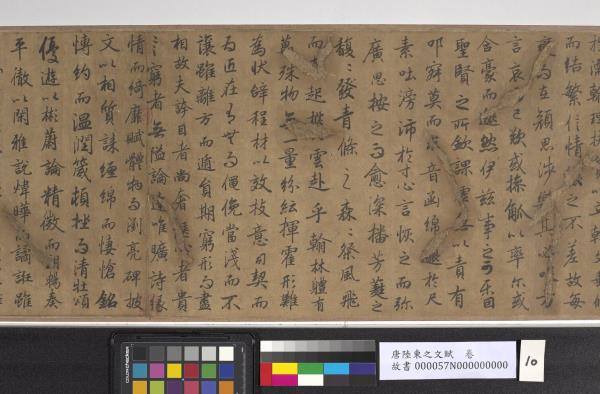 濡翰理扶質以立幹文垂條
而結繁信情之不差故每
變而在顏思涉其必
言哀已歎或操觚以率尒或
含豪而邈然伊茲事之可樂固
聖賢之所欽課虛以責有
叩寂莫而求音函綿邈於尺
素吐滂沛於寸心言恢之而弥
廣思按之而愈深播芳蕤之
馥〻發青條之森〻粲風飛
而起欝雲起乎翰林體有
萬殊物無一量紛紜揮霍形難
為狀辭程材以效技意司契而
為匠在有無而僶俛當淺而不
讓雖離方而遁員期窮形而盡
相故夫誇目者尚奢愜心者貴
言窮者無隘論達唯曠詩緣
情而綺靡賦體物而瀏亮碑披
文以相質誄纏綿而悽愴銘
博約而溫潤箴頓挫而清壯頌
優遊以彬蔚論精微而朗暢奏
平徹以閑雅說煒曄以譎誑雖
唐陸柬之文賦　卷
故書 000057N000000000
10